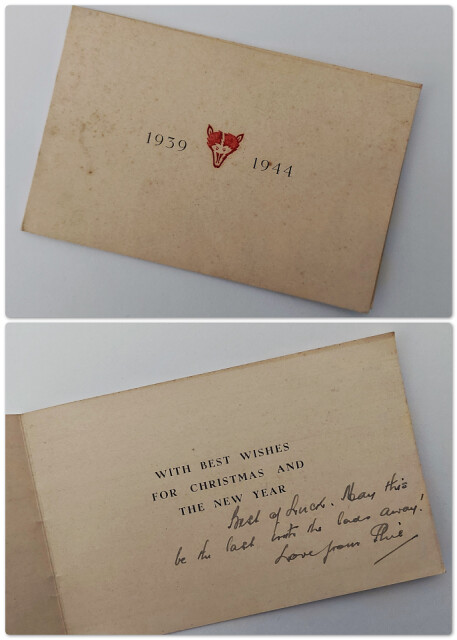 1939 1944
WITH BEST WISHES
FOR CHRISTMAS AND
THE NEW YEAR
Best of Luck. May this
be the last with the lads away!
Love from Phil